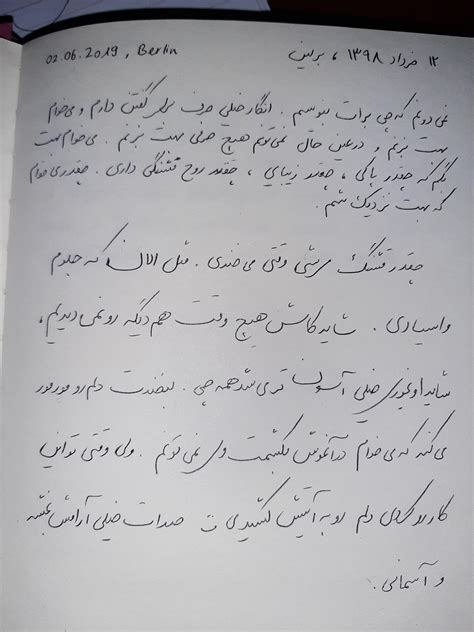 02.06.2019, Berlin
۱۲ خرداد ۱۳۹۸، برلین
نمی دونم که چی برات بنویسم. انگار خیلی حرف برای گفتن دارم و می خوام
بهت بزنم و در عین حال نمی تونم هیچ حرفی بهت بزنم. می خوام بهت
بگم که چقدر پاکی، چقدر زیبایی، چقدر روح قشنگی داری. چقدر می خوام
که بهت نزدیک شم.
چقدر قشنگ می شی وقتی می خندی. مثل الان که جلوم
وایسادی. شاید کاش هیچ وقت هم دیگه رو نمی دیدیم،
شاید اونجوری خیلی آسون تر می شد همه چی. لبخندت دلم رو مور مور
می کنه که می خوام در آغوش بکشمت ولی نمی تونم. ولی وقتی تو این
کار رو کردی دلم رو به آتیش کشیدی. صدات خیلی آرامش بخشه
و آسمانی.